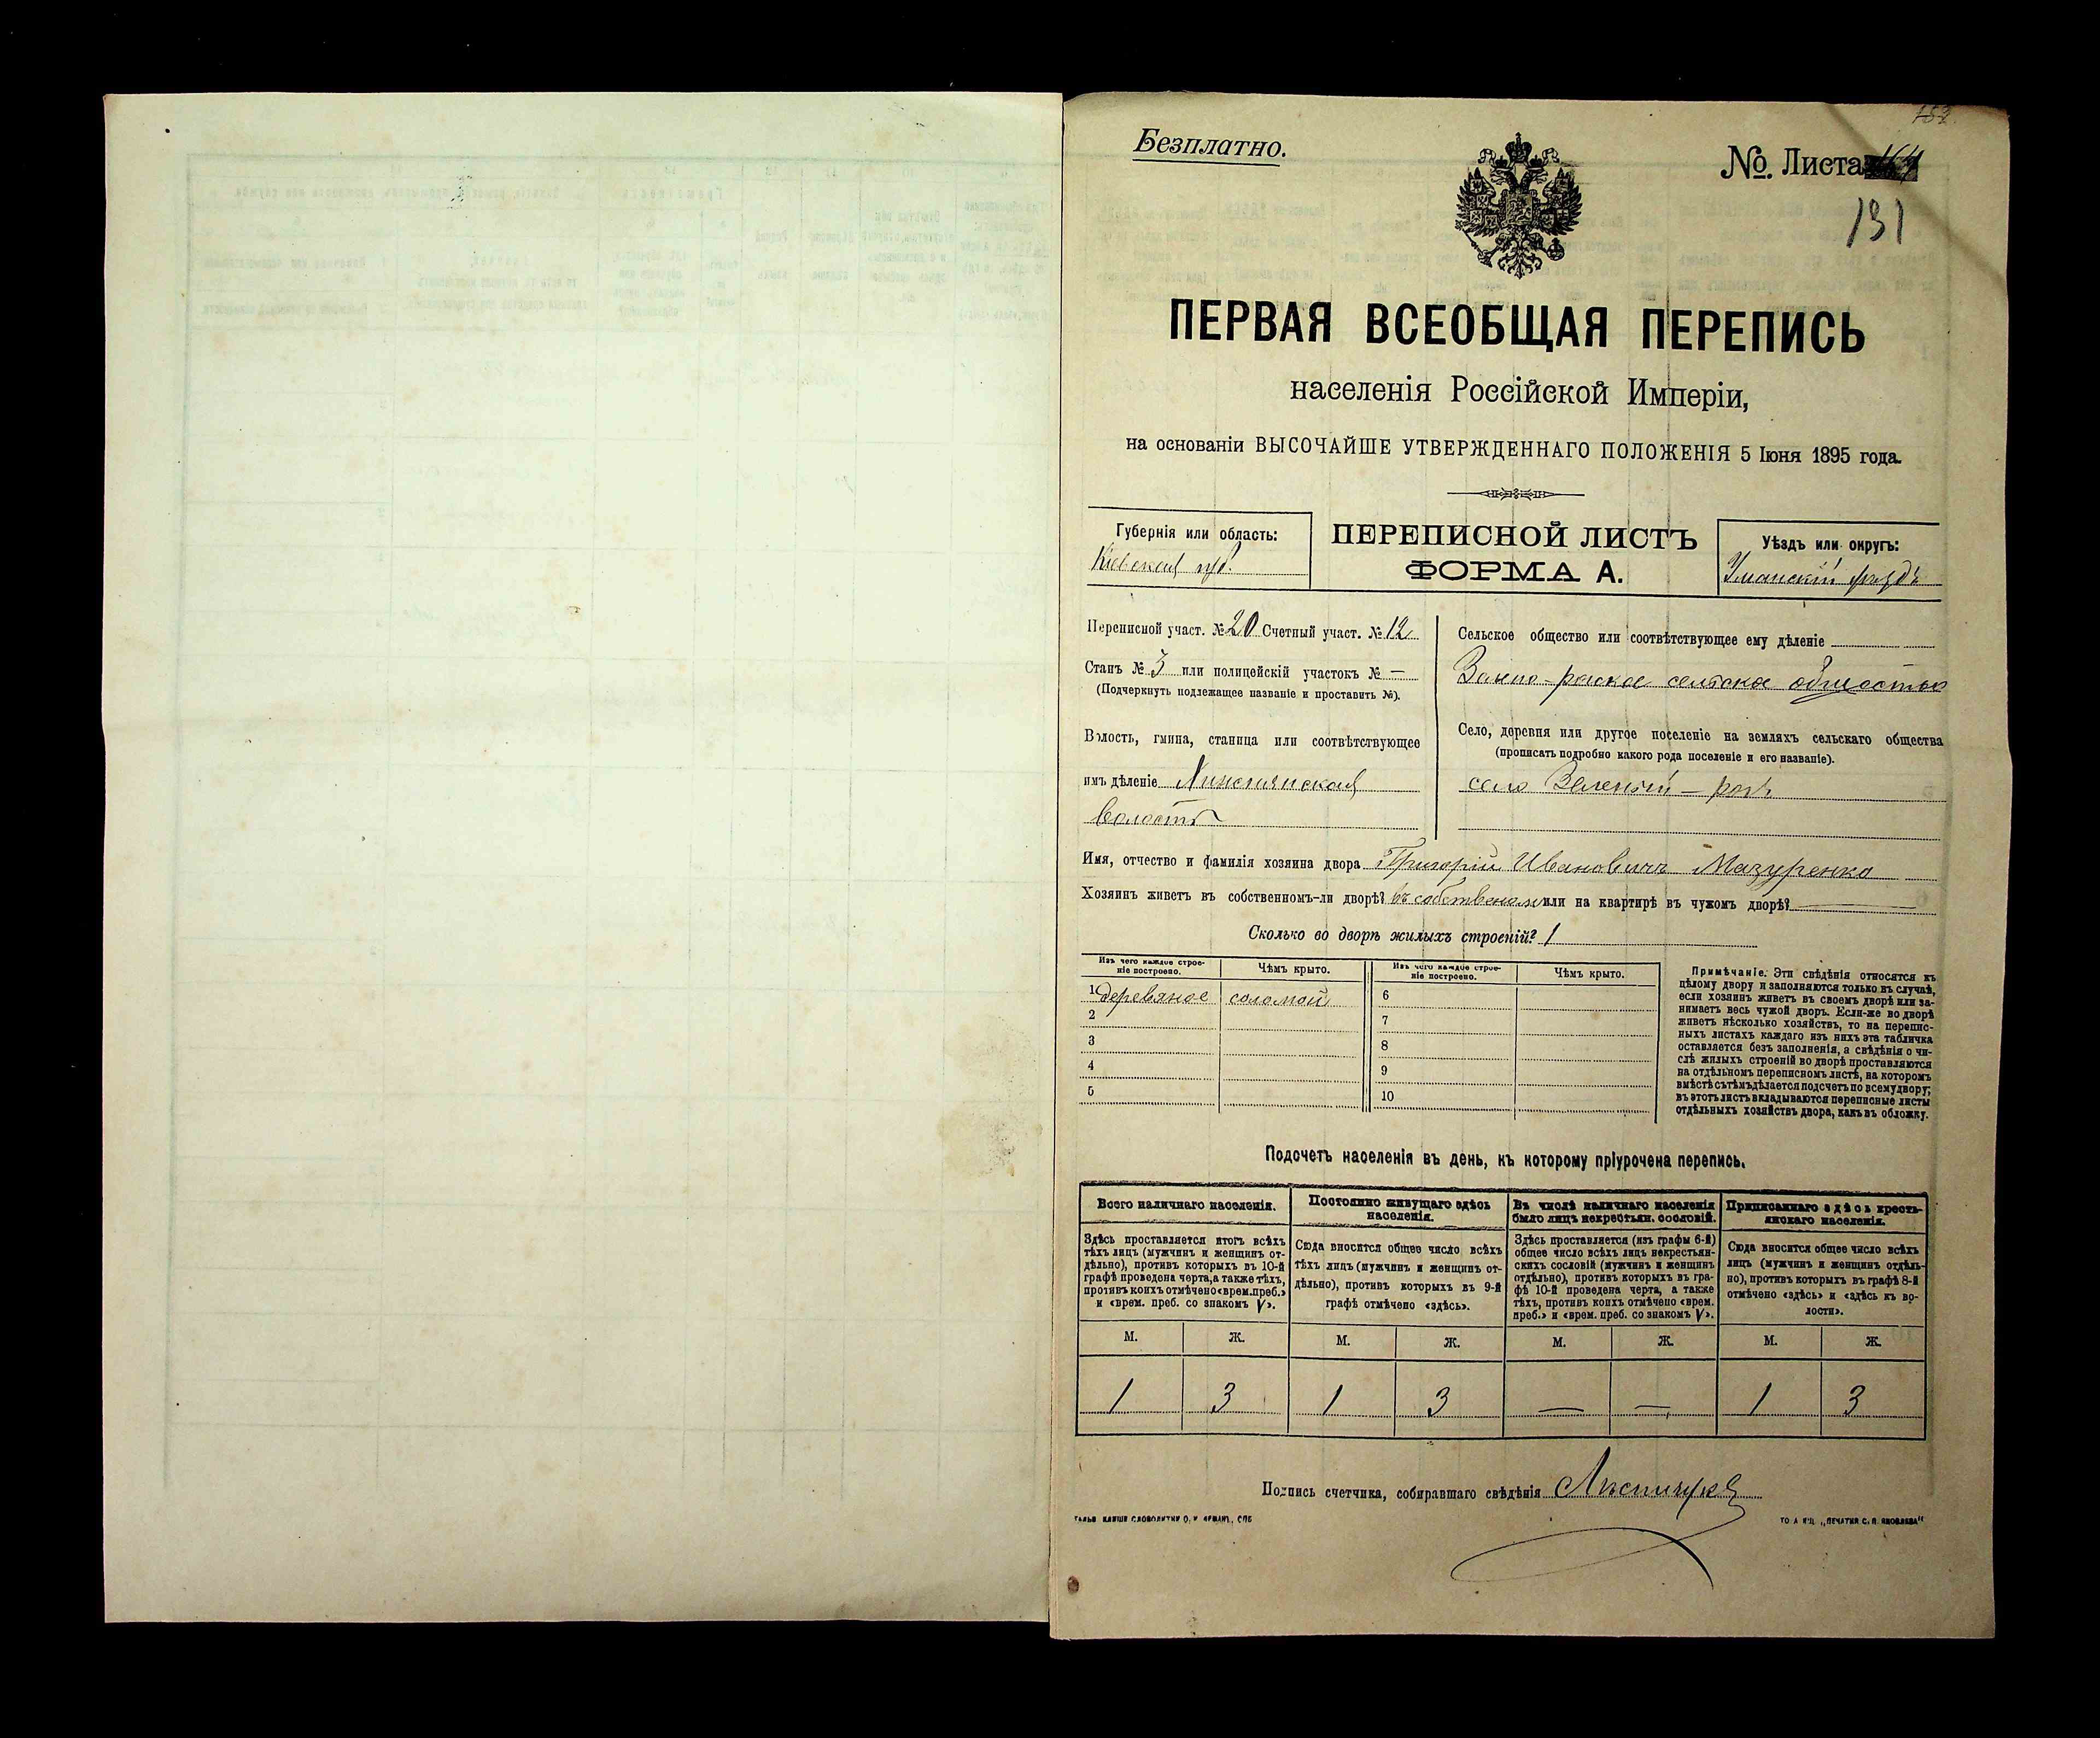 Безплатно.
№. Листа
131
ПЕРВАЯ ВСЕОБЩАЯ ПЕРЕПИСЬ
населенія Россійской Имперіи,
на основаніи ВЫСОЧАЙШЕ УТВЕРЖДЕННАГО ПОЛОЖЕНІЯ 5 Іюня 1895 года.
Губернія или область:
Кіевская губ.
ПЕРЕПИСНОЙ ЛИСТЪ
ФОРМА А.
Уѣздъ или округъ:
Уманскій уѣздъ
Переписной участ. № 20 Счетный участ. № 12
Станъ № 3 или полицейскій участокъ № —
(Подчеркнуть подлежащее названіе и проставить №).
Волость, гмина, станица или соотвѣтствующее
имъ дѣленіе
волость
Сельское общество или соотвѣтствующее ему дѣленіе
сельское общество
Село, деревня или другое поселеніе на земляхъ сельскаго общества
(прописать подробно какого рода поселеніе и его названіе).
село Зеленый – рогъ
Имя, отчество и фамилія хозяина двора Григорій Ивановичъ Мазуренко
Хозяинъ живетъ въ собственномъ-ли дворѣ? въ собственом или на квартирѣ въ чужомъ дворѣ? —
Сколько во дворѣ жилыхъ строеній? 1
Изъ чего каждое строе-
ніе построено.
Чѣмъ крыто.
Изъ чего каждое строе-
ніе построено.
Чѣмъ крыто.
1 деревяное соломой 6
2 7
3 8
4 9
5 10
Примѣчаніе. Эти свѣдѣнія относятся къ
цѣлому двору и заполняются только въ случаѣ,
если хозяинъ живетъ въ своемъ дворѣ или за-
нимаетъ весь чужой дворъ. Если-же во дворѣ
живетъ нѣсколько хозяйствъ, то на перепис-
ныхъ листахъ каждаго изъ нихъ эта табличка
оставляется безъ заполненія, а свѣдѣнія о чи-
слѣ жилыхъ строеній во дворѣ проставляются
на отдѣльномъ переписномъ листѣ, на которомъ
вмѣстѣ съ тѣмъ дѣлается подсчетъ по всему двору;
въ этотъ листъ вкладываются переписные листы
отдѣльныхъ хозяйствъ двора, какъ въ обложку.
Подсчетъ населенія въ день, къ которому пріурочена перепись.
Всего наличнаго населенія.
Здѣсь проставляется итогъ всѣхъ
тѣхъ лицъ (мужчинъ и женщинъ от-
дѣльно), противъ которыхъ въ 10-й
графѣ проведена черта, а также тѣхъ,
противъ коихъ отмѣчено «врем. преб.»
и «врем. преб. со знакомъ V».
Постоянно живущаго здѣсь
населенія.
Сюда вносится общее число всѣхъ
тѣхъ лицъ (мужчинъ и женщинъ от-
дѣльно), противъ которыхъ въ 9-й
графѣ отмѣчено «здѣсь».
Въ числѣ наличнаго населенія
было лицъ некрестьян. сословій.
Здѣсь проставляется (изъ графы 6-й)
общее число всѣхъ лицъ некрестьян-
скихъ сословій (мужчинъ и женщинъ
отдѣльно), противъ которыхъ въ гра-
фѣ 10-й проведена черта, а также
тѣхъ, противъ коихъ отмѣчено «врем.
преб.» и «врем. преб. со знакомъ V».
Приписаннаго здѣсь кресть-
янскаго населенія.
Сюда вносится общее число всѣхъ
лицъ (мужчинъ и женщинъ отдѣль-
но), противъ которыхъ въ графѣ 8-й
отмѣчено «здѣсь» и «здѣсь къ во-
лости».
М. Ж. М. Ж. М. Ж. М. Ж.
1 3 1 3 — — 1 3
Подпись счетчика, собиравшаго свѣдѣнія